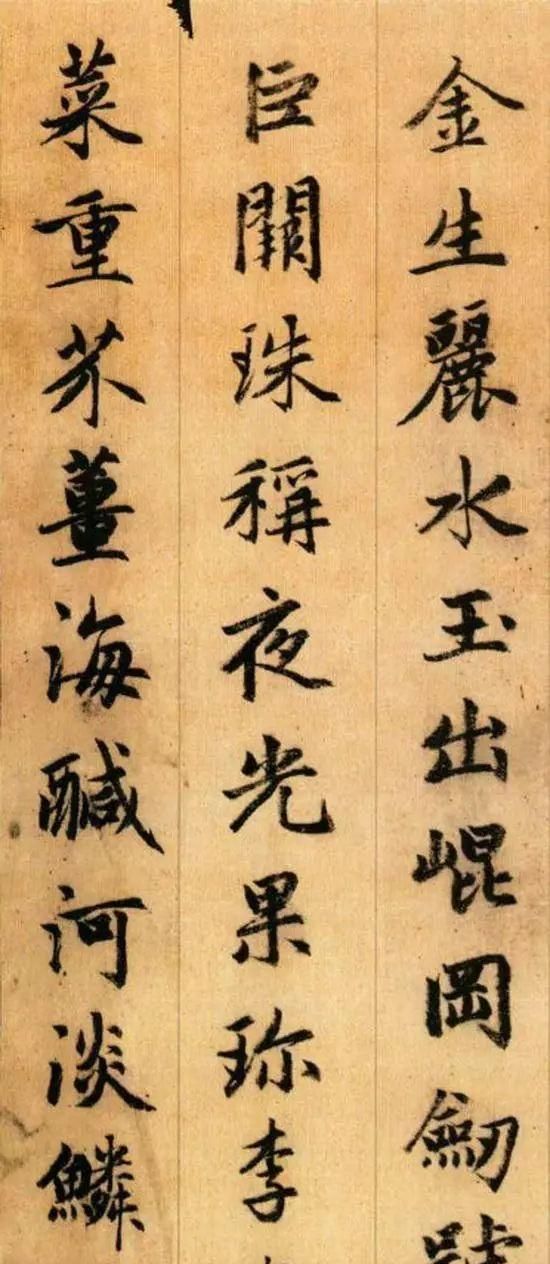 金生麗水玉出崐岡劒號
巨闕珠稱夜光果珎李
菜重芥薑海醎河淡鱗